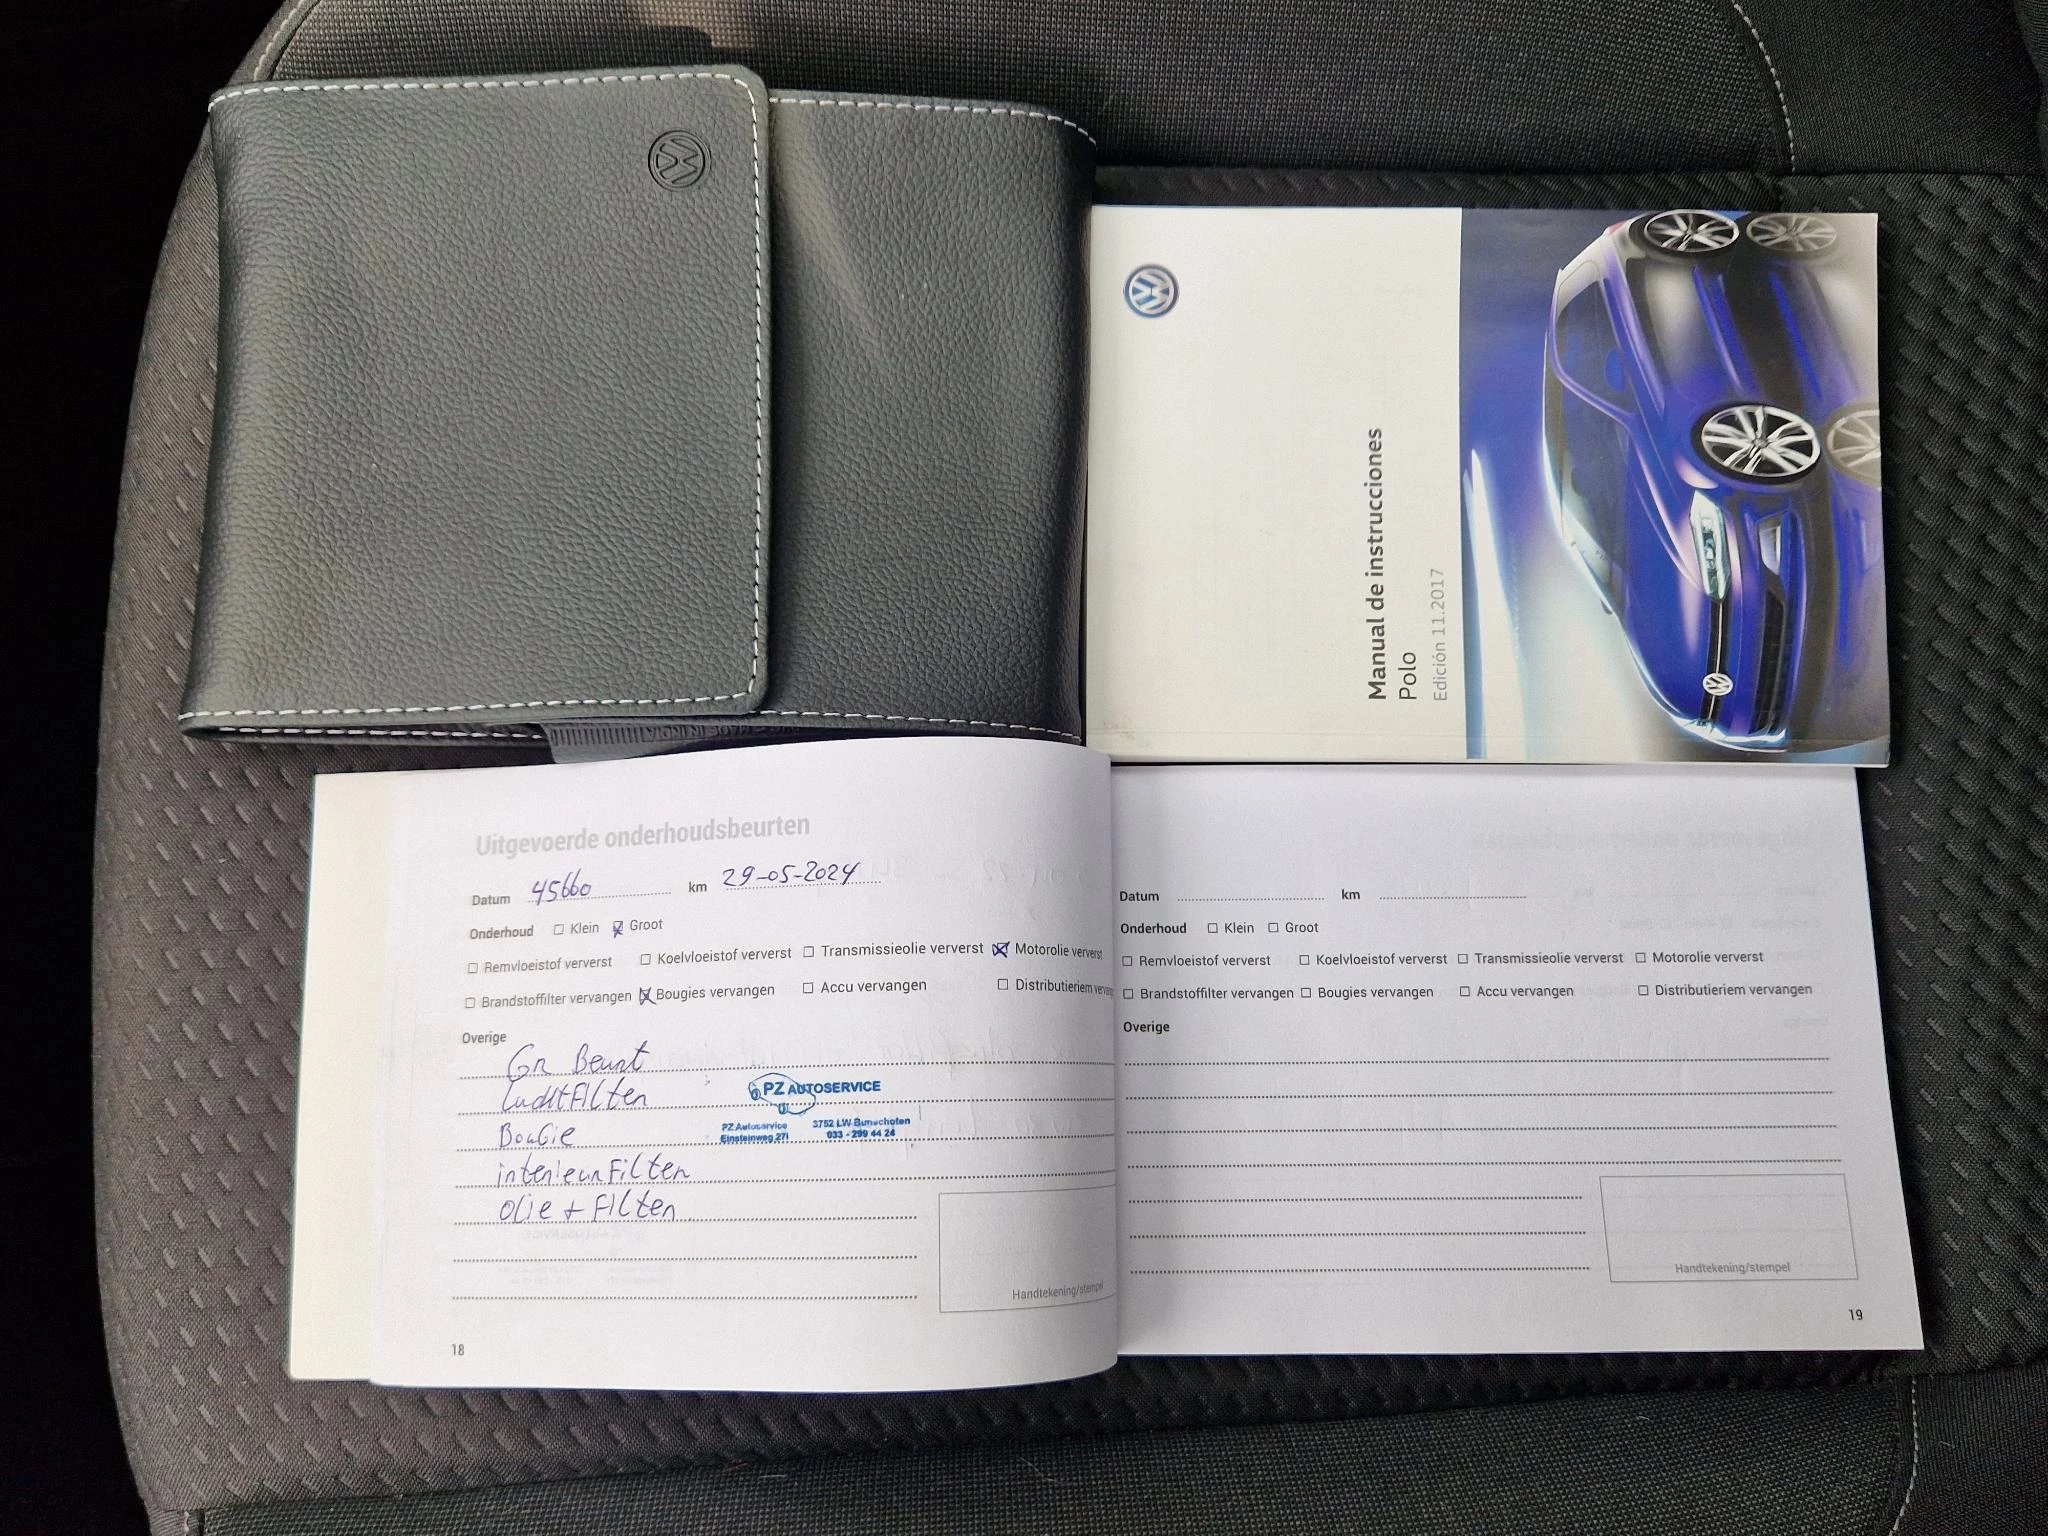 MADE IN INDIA
Manual de instrucciones
Polo
Edición 11.2017
Uitgevoerde onderhoudsbeurten
Datum 45660 km 29-05-2024
Onderhoud Klein Groot
Remvloeistof ververst Koelvloeistof ververst Transmissieolie ververst Motorolie ververst
Brandstoffilter vervangen Bougies vervangen Accu vervangen Distributieriem vervang
Overige
Gr Beurt
luchtFilter
BouGie
interieur Filter
olie + Filter
PZ AUTOSERVICE
PZ Autoservice 3752 LW Bunschoten
Einsteinweg 27i 033 - 299 44 24
Handtekening/stempel
18
Datum km
Onderhoud Klein Groot
Remvloeistof ververst Koelvloeistof ververst Transmissieolie ververst Motorolie ververst
Brandstoffilter vervangen Bougies vervangen Accu vervangen Distributieriem vervangen
Overige
Handtekening/stempel
19